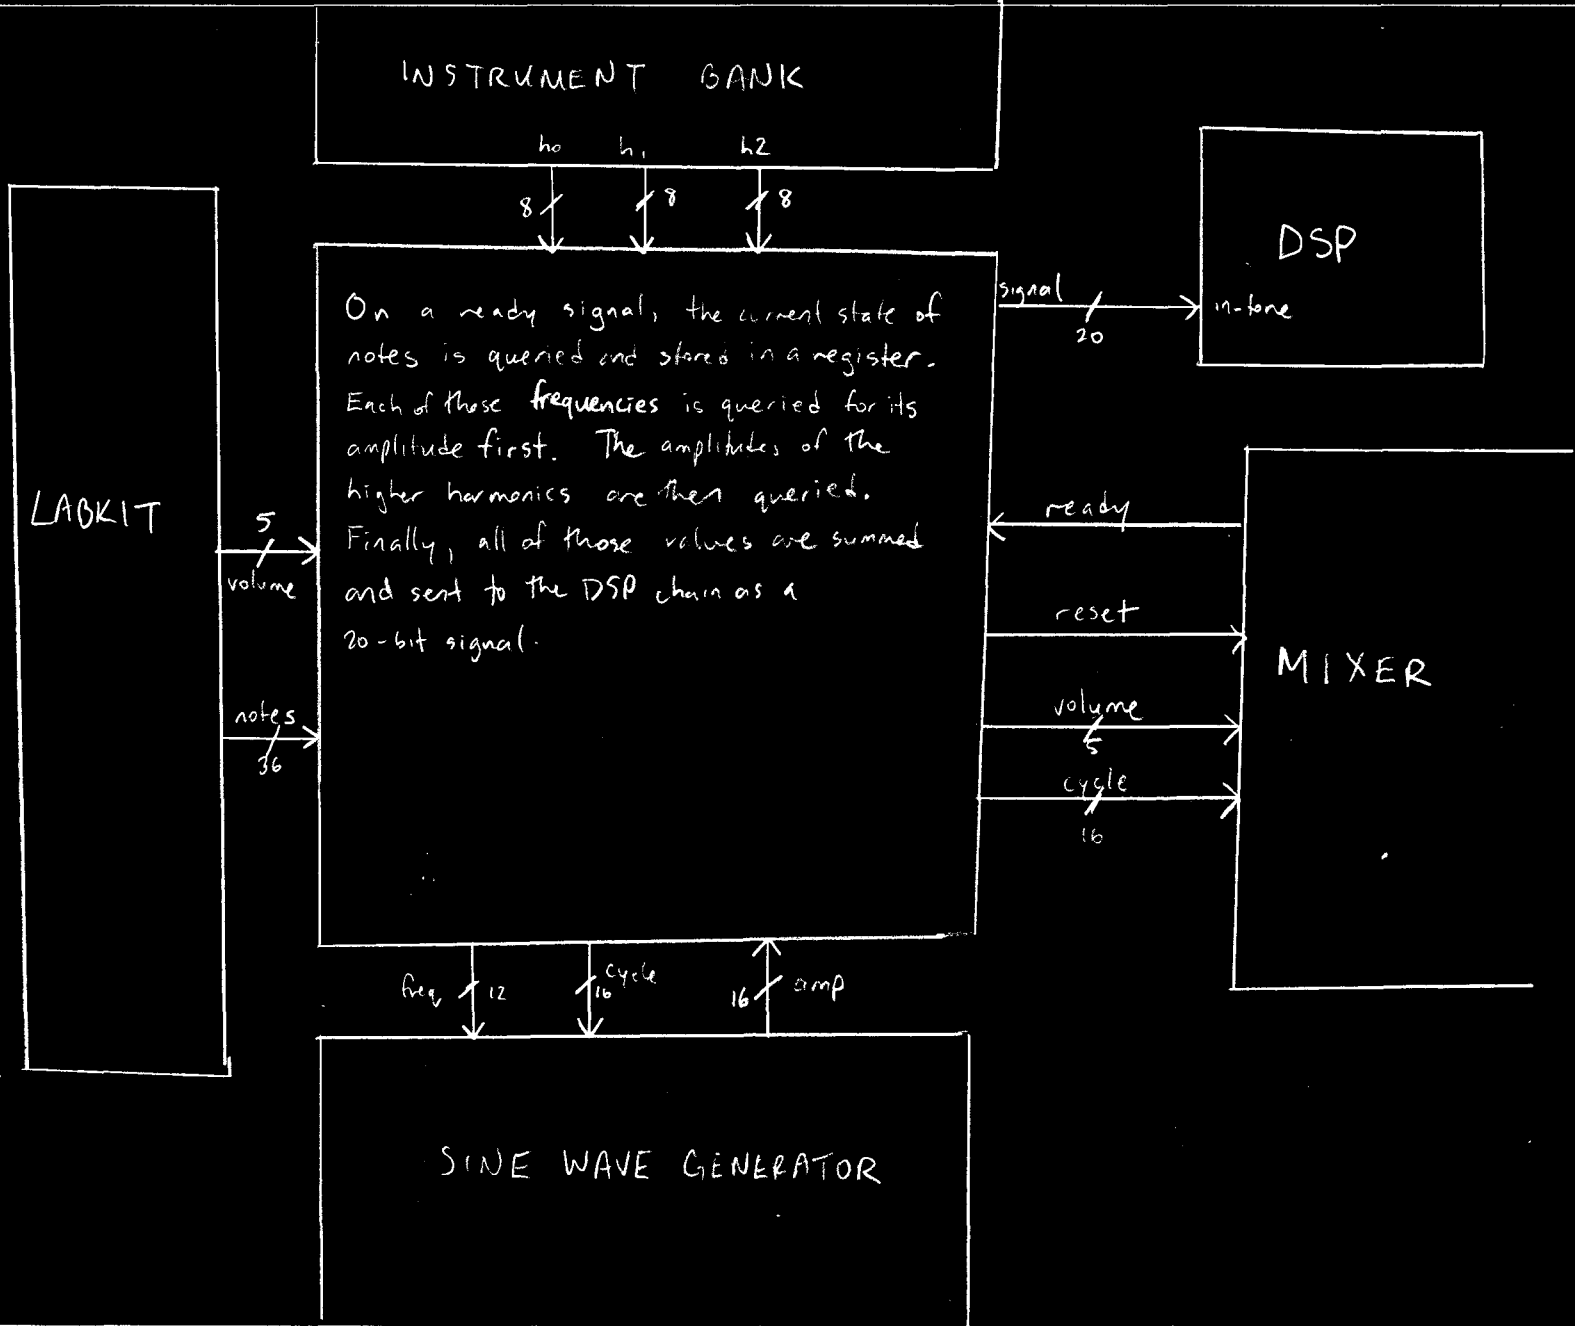 INSTRUMENT BANK
h0 h1 h2
8 8 8
DSP
signal
20
in-tone
On a ready signal, the current state of
notes is queried and stored in a register.
Each of those frequencies is queried for its
amplitude first. The amplitudes of the
higher harmonics are then queried.
Finally, all of those values are summed
and sent to the DSP chain as a
20-bit signal.
LABKIT
5
volume
notes
36
ready
reset
volume
5
cycle
16
MIXER
freq 12
cycle
16
16 amp
SINE WAVE GENERATOR